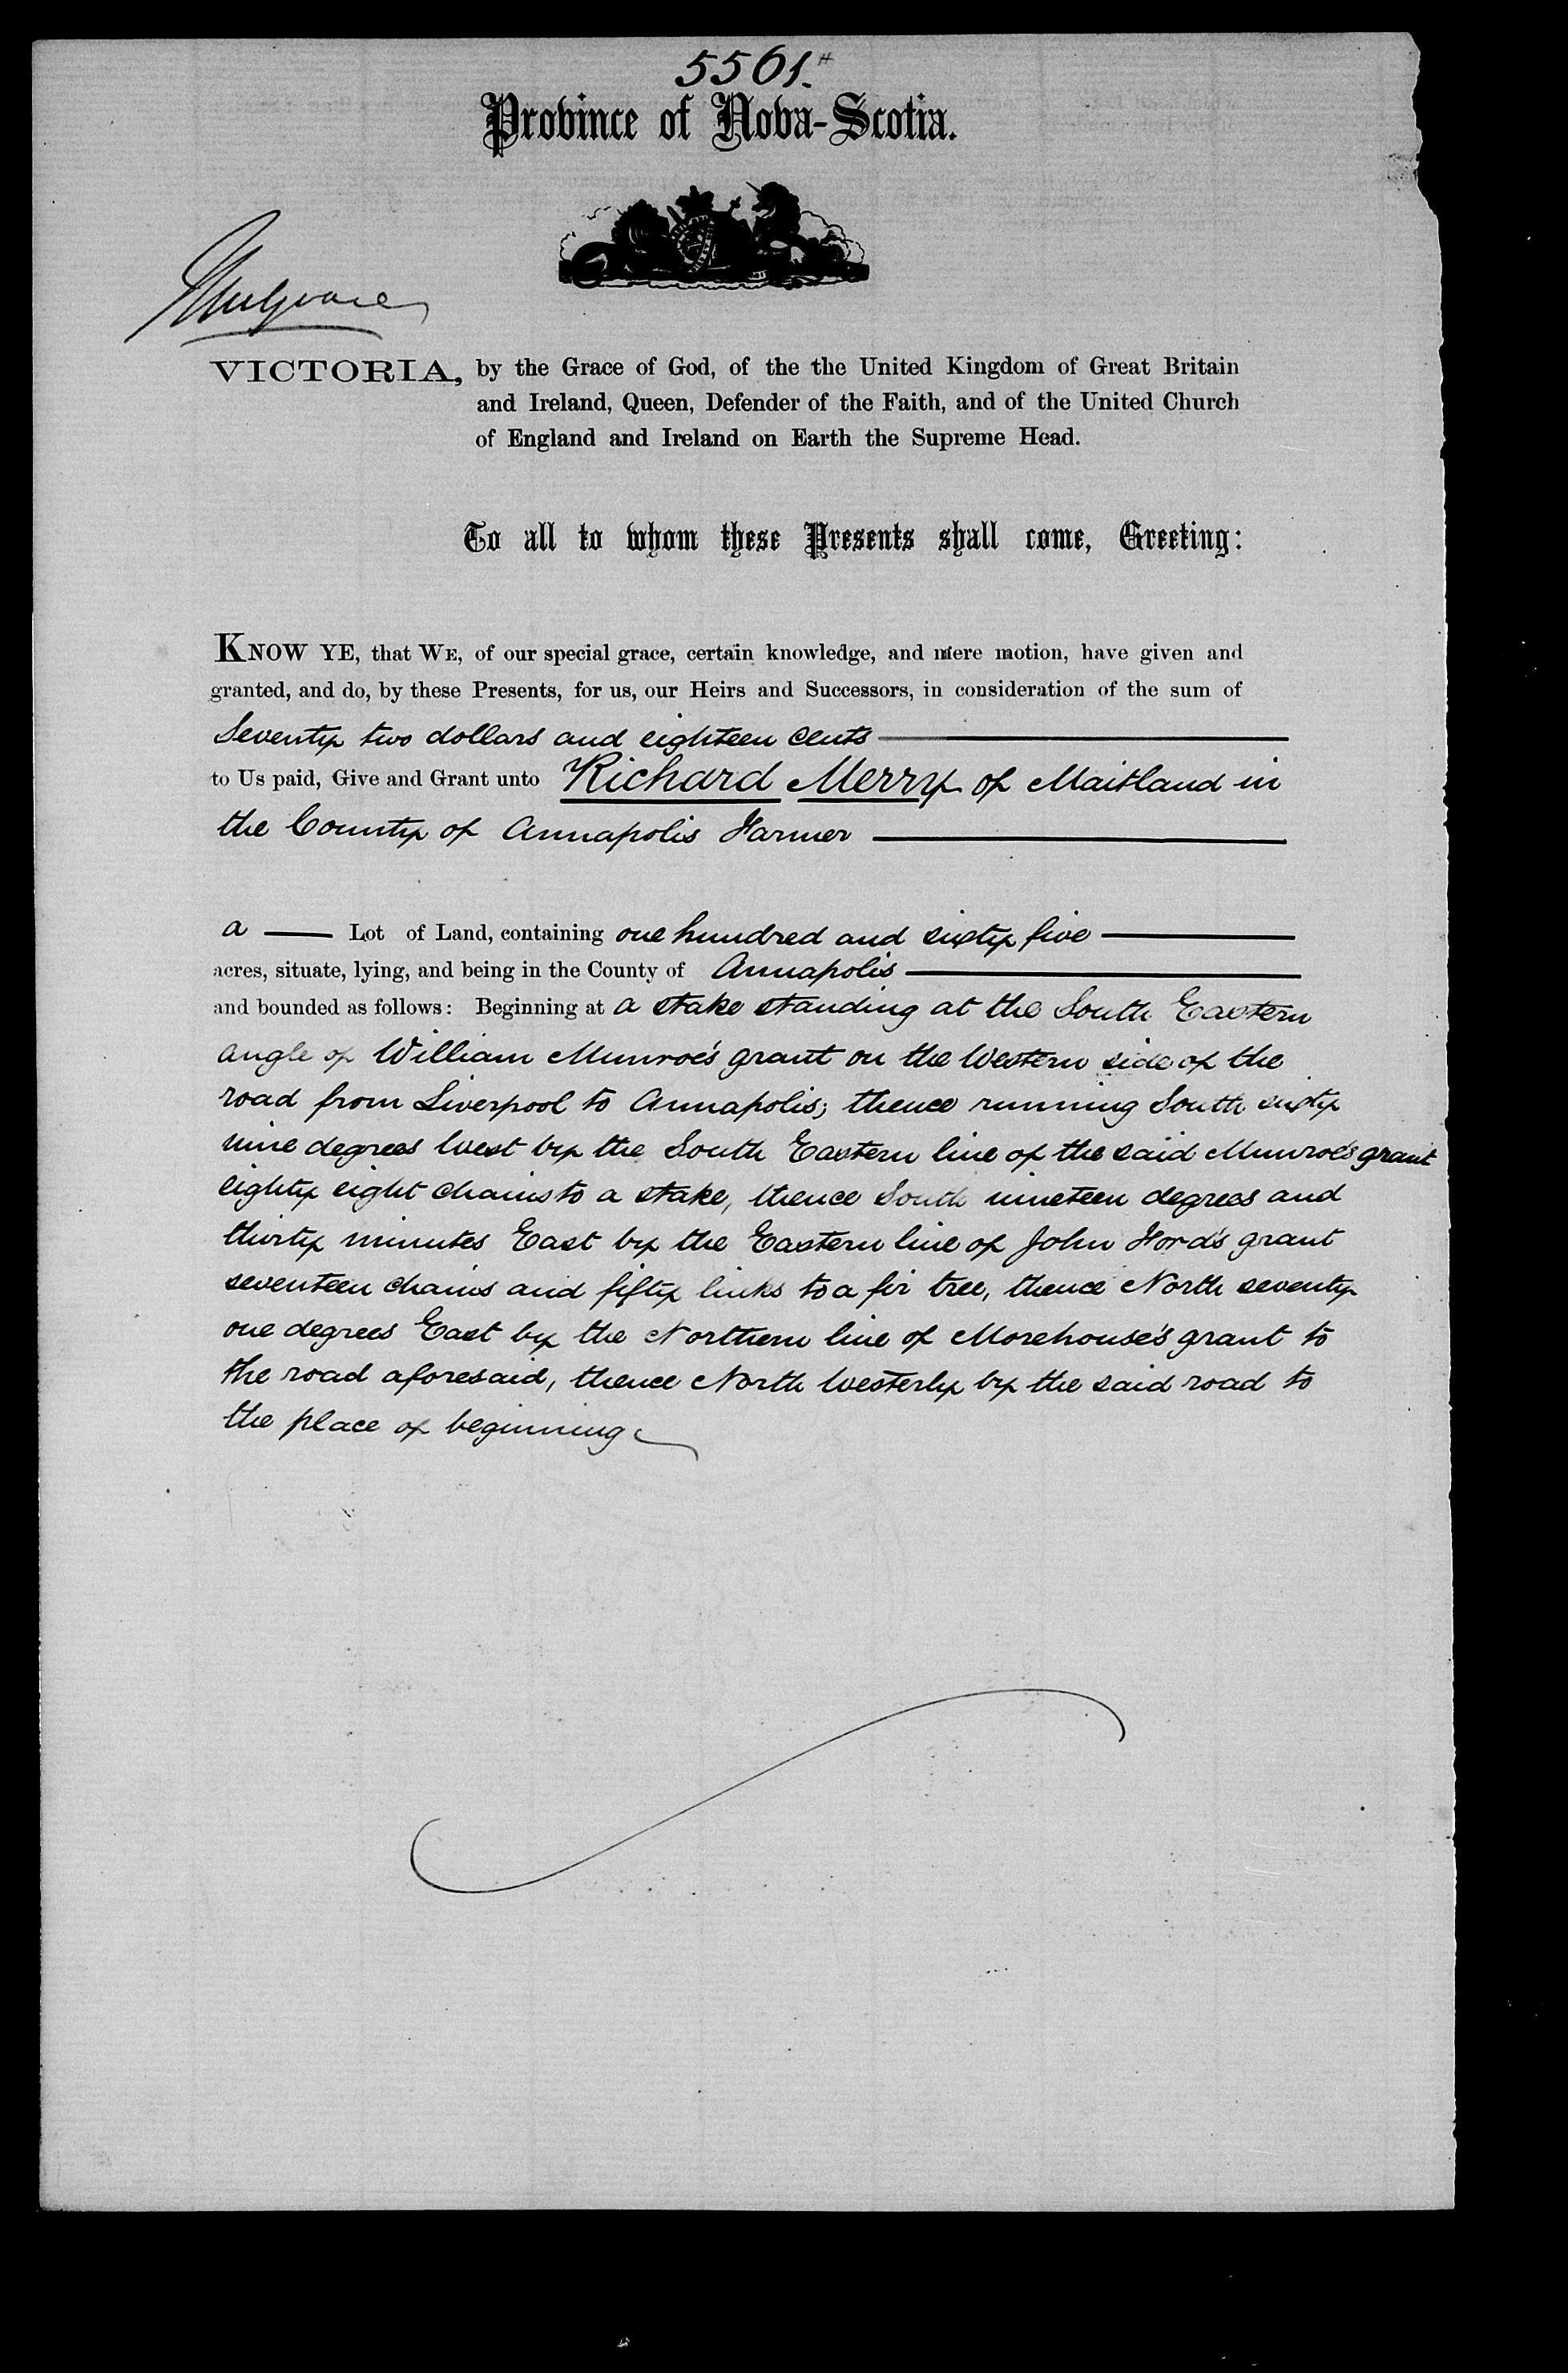 5561.
Province of Nova-Scotia.
Mulgrave
VICTORIA, by the Grace of God, of the the United Kingdom of Great Britain
and Ireland, Queen, Defender of the Faith, and of the United Church
of England and Ireland on Earth the Supreme Head.
To all to whom these Presents shall come, Greeting:
KNOW YE, that WE, of our special grace, certain knowledge, and mere motion, have given and
granted, and do, by these Presents, for us, our Heirs and Successors, in consideration of the sum of
Seventy two dollars and eighteen cents
to Us paid, Give and Grant unto Richard Merry of Maitland in
the County of Annapolis Farmer
a Lot of Land, containing one hundred and sixty five
acres, situate, lying, and being in the County of Annapolis
and bounded as follows: Beginning at a stake standing at the South Eastern
angle of William Munroe's grant on the Western side of the
road from Liverpool to Annapolis; thence running South sixty
nine degrees West by the South Eastern line of the said Munroe's grant
eighty eight chains to a stake, thence South nineteen degrees and
thirty minutes East by the Eastern line of John Ford's grant
seventeen chains and fifty links to a fir tree, thence North seventy
one degrees East by the Northern line of Morehouse's grant to
the road aforesaid, thence North Westerly by the said road to
the place of beginning